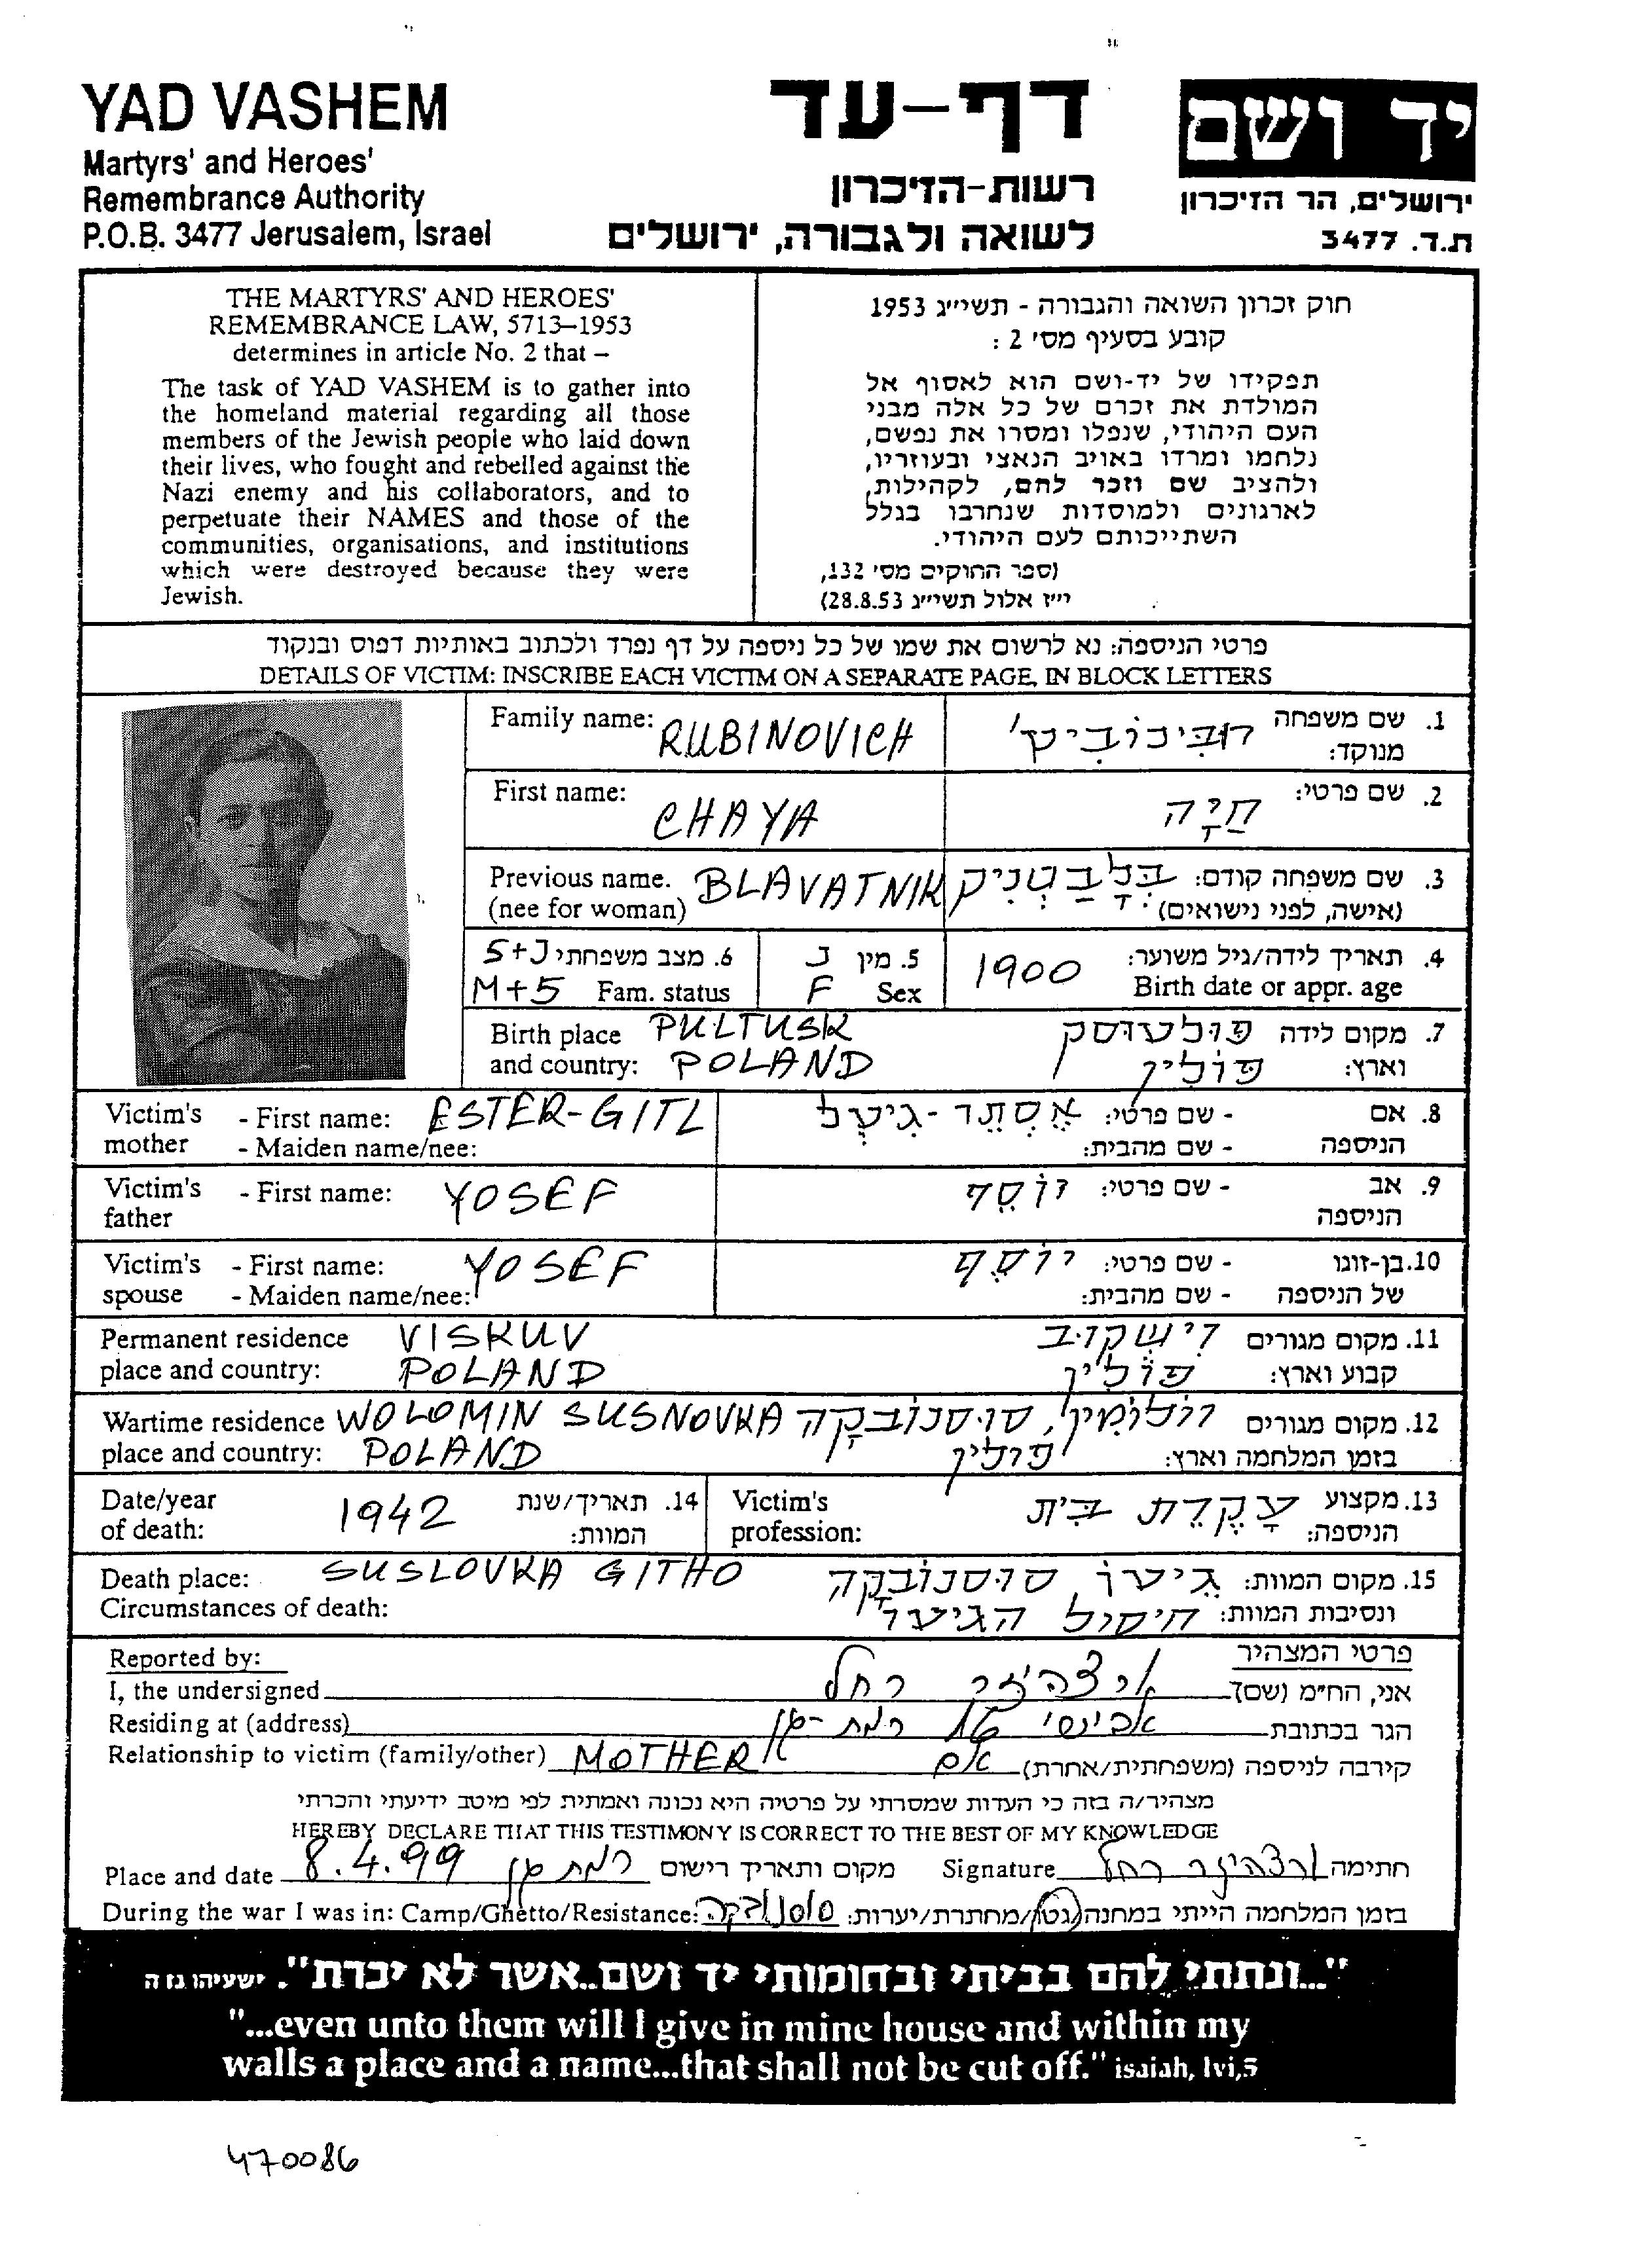 YAD VASHEM
Martyrs' and Heroes'
Remembrance Authority
P.O.B. 3477 Jerusalem, Israel
דף-עד
רשות-הזיכרון
לשואה ולגבורה, ירושלים
יד ושם
ירושלים, הר הזיכרון
ת.ד. 3477
THE MARTYRS' AND HEROES'
REMEMBRANCE LAW, 5713–1953
determines in article No. 2 that –
The task of YAD VASHEM is to gather into
the homeland material regarding all those
members of the Jewish people who laid down
their lives, who fought and rebelled against the
Nazi enemy and his collaborators, and to
perpetuate their NAMES and those of the
communities, organisations, and institutions
which were destroyed because they were
Jewish.
חוק זכרון השואה והגבורה - תשי״ג 1953
קובע בסעיף מס' 2 :
תפקידו של יד-ושם הוא לאסוף אל
המולדת את זכרם של כל אלה מבני
העם היהודי, שנפלו ומסרו את נפשם,
נלחמו ומרדו באויב הנאצי ובעוזריו,
ולהציב שם וזכר להם, לקהילות,
לארגונים ולמוסדות שנחרבו בגלל
השתייכותם לעם היהודי.
(ספר החוקים מס' 132,
י״ז אלול תשי״ג 28.8.53)
פרטי הניספה: נא לרשום את שמו של כל ניספה על דף נפרד ולכתוב באותיות דפוס ובנקוד
DETAILS OF VICTIM: INSCRIBE EACH VICTIM ON A SEPARATE PAGE, IN BLOCK LETTERS
Family name: RUBINOVICH
1. שם משפחה רובינוביץ'
מנוקד:
First name: CHAYA
2. שם פרטי: חַיָה
Previous name. BLAVATNIK
(nee for woman)
3. שם משפחה קודם: בְּלָבַטְנִיק
(אישה, לפני נישואים)
6. מצב משפחתי נ+5
M+5 Fam. status
5. מין נ
F Sex
4. תאריך לידה/גיל משוער: 1900
Birth date or appr. age
Birth place PULTUSK
and country: POLAND
7. מקום לידה פולטוסק
וארץ: פולין
Victim's - First name: ESTER-GITL
mother - Maiden name/nee:
8. אם - שם פרטי: אֶסְתֵר-גִיטְל
הניספה - שם מהבית:
Victim's - First name: YOSEF
father
9. אב - שם פרטי: יוֹסֵף
הניספה
Victim's - First name: YOSEF
spouse - Maiden name/nee:
10. בן-זוגו - שם פרטי: יוֹסֵף
של הניספה - שם מהבית:
Permanent residence VISKUV
place and country: POLAND
11. מקום מגורים וישקוב
קבוע וארץ: פולין
Wartime residence WOLOMIN SUSNOVKA
place and country: POLAND
12. מקום מגורים וולומין, סוסנובקה
בזמן המלחמה וארץ: פולין
Date/year 1942
of death:
14. תאריך/שנת
המוות:
Victim's
profession:
13. מקצוע עֲקֶרֶת בית
הניספה:
Death place: SUSLOVKA GITHO
Circumstances of death:
15. מקום המוות: גיטו, סוסנובקה
ונסיבות המוות: חיסול הגיטו
Reported by:
פרטי המצהיר
I, the undersigned
אני, הח״מ (שם) רחל
Residing at (address)
הגר בכתובת רמת-גן
Relationship to victim (family/other) MOTHER
קירבה לניספה (משפחתית/אחרת) אם
מצהיר/ה בזה כי העדות שמסרתי על פרטיה היא נכונה ואמתית לפי מיטב ידיעתי והכרתי
HEREBY DECLARE THAT THIS TESTIMONY IS CORRECT TO THE BEST OF MY KNOWLEDGE
Place and date 8.4.99 רמת גן מקום ותאריך רישום
Signature רחל חתימה
During the war I was in: Camp/Ghetto/Resistance: סוסנובקה בזמן המלחמה הייתי במחנה/גטו/מחתרת/יערות:
"...ונתתי להם בביתי ובחומותי יד ושם..אשר לא יכרת". ישעיהו נו ה
"...even unto them will I give in mine house and within my
walls a place and a name...that shall not be cut off." isaiah, lvi,5
470086